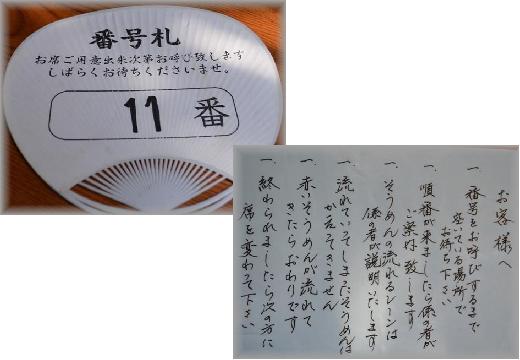 番号札
お席ご用意出来次第お呼び致します
しばらくお待ちくださいませ。
11 番
お客様へ
一、番号をお呼びするまで
空いている場所で
お待ち下さい
一、順番が来ましたら係の者が
ご案内致します
一、そうめんの流れるレーンは
係の者が説明いたします
一、流れていってしまったそうめんは
かえってきません
一、赤いそうめんが流れて
きたらおわりです
一、終わられましたら次の方に
席を変わって下さい